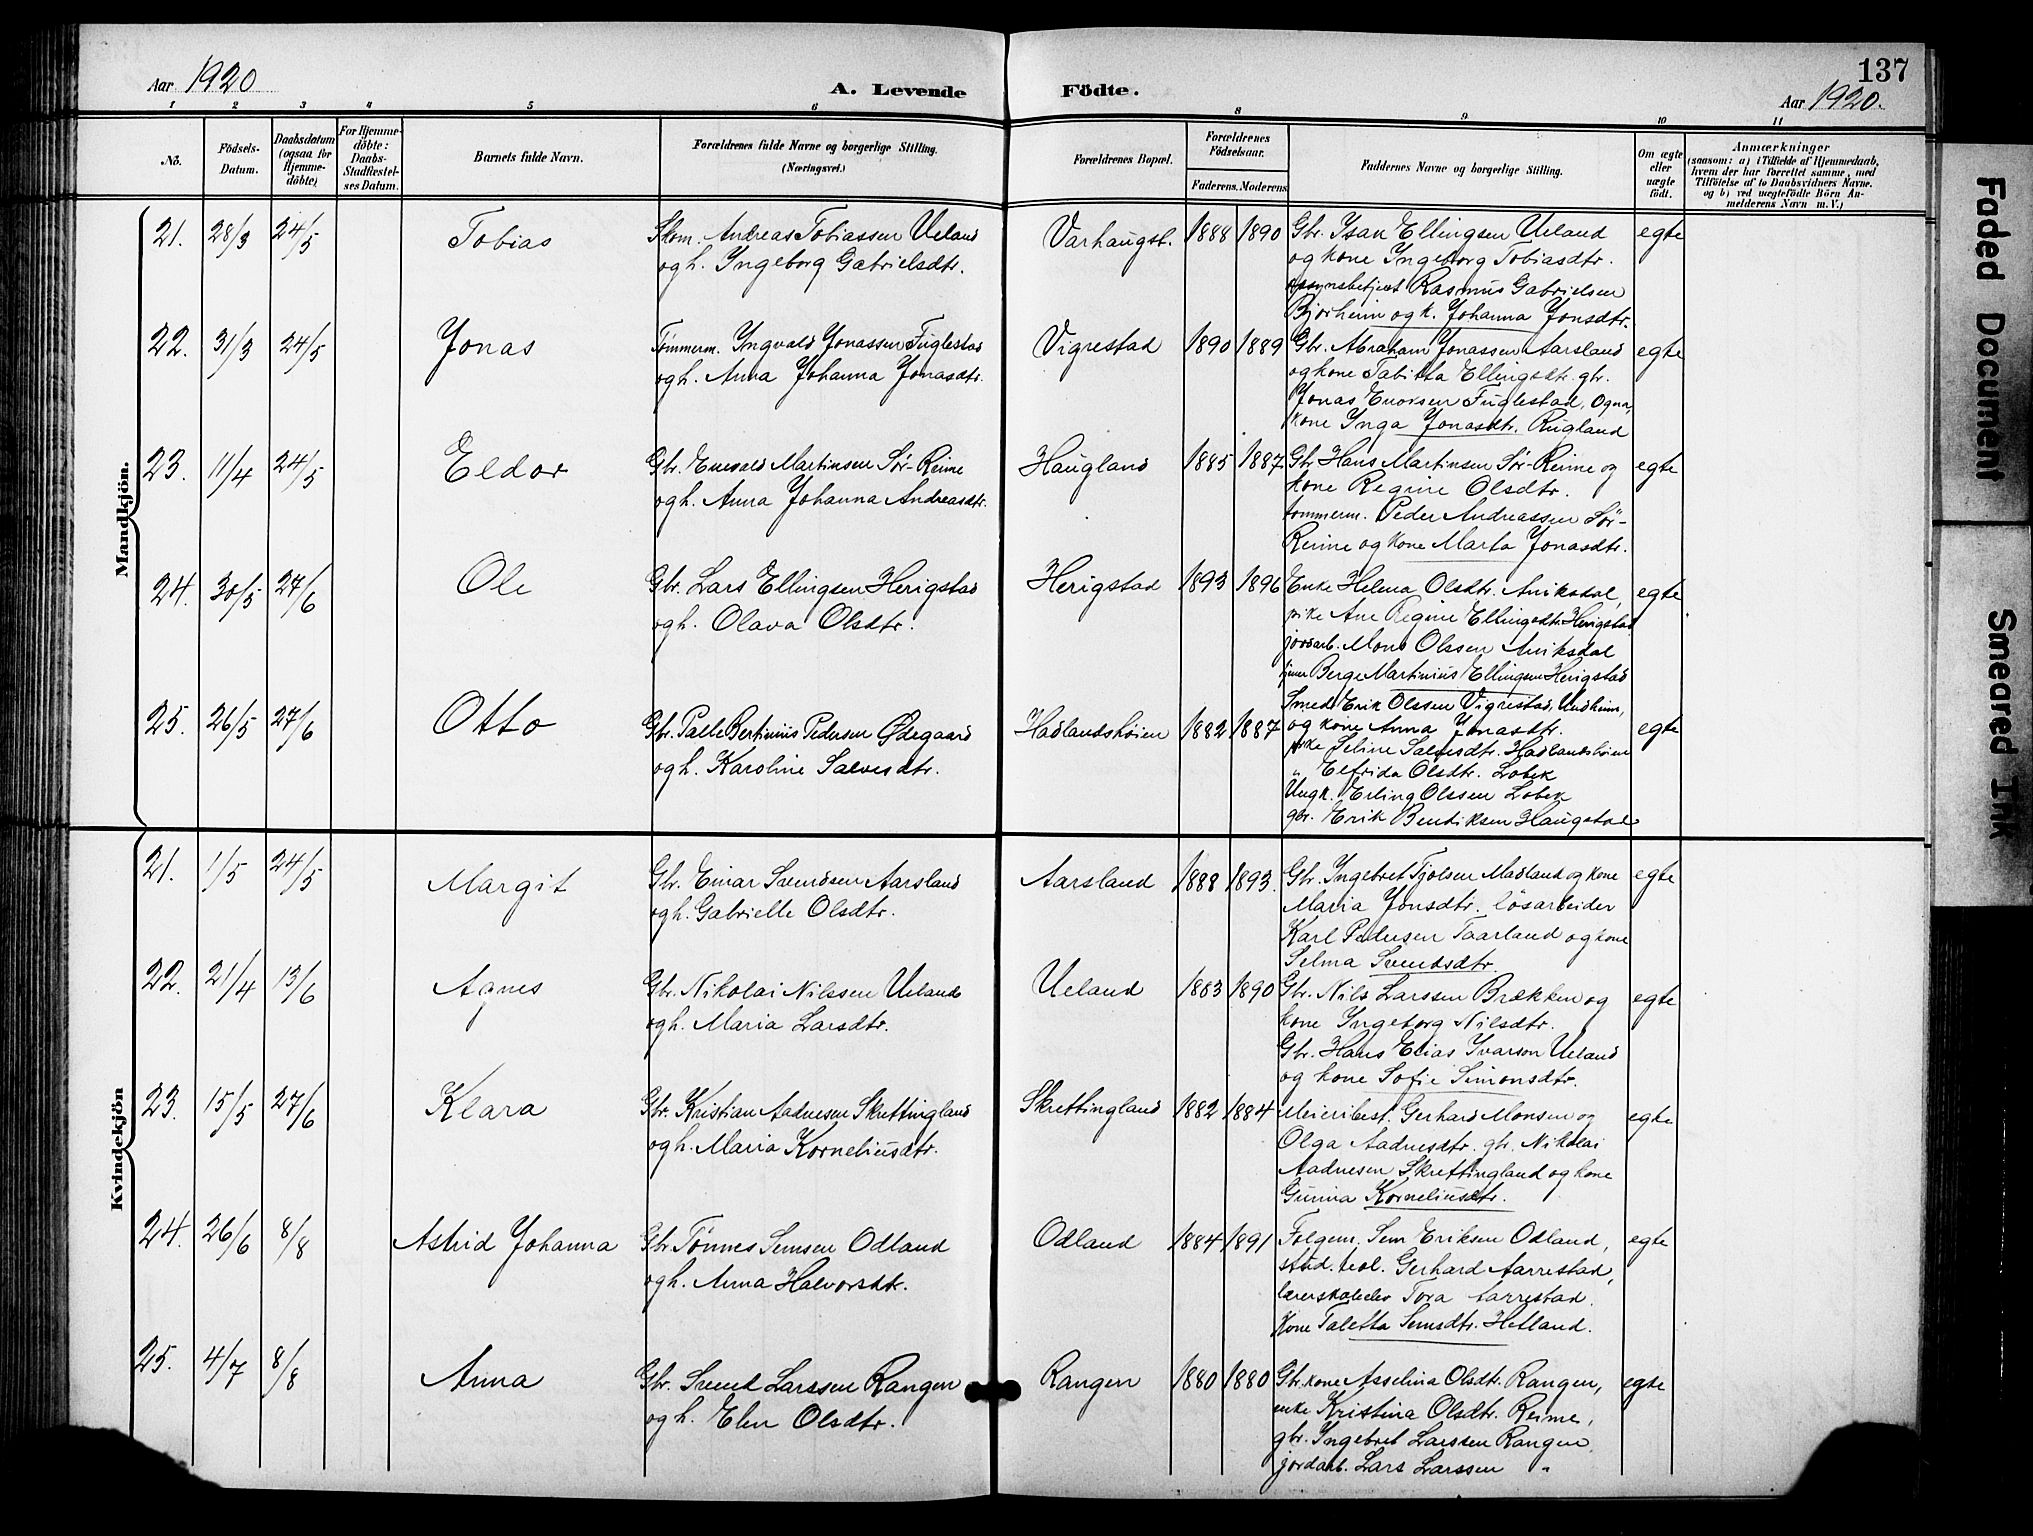 137
Aar 1920
A. Levende Födte.
Aar 1920.
1 2 3 4 5 6 8 9 10 11
Nö.
Födsels-
Datum.
Daabsdatum
(ogsaa for
Hjemme-
döbte)
For Hjemme-
döbte:
Daabs-
Stadfæstel-
ses Datum.
Barnets fulde Navn.
Forældrenes fulde Navne og borgerlige Stilling.
(Næringsvei.)
Forældrenes Bopæl.
Forældrenes
Födselsaar.
Faderens. Moderens
Faddernes Navne og borgerlige Stilling.
Om ægte
eller
uægte
födt.
Anmærkninger
(saasom: a) i Tilfælde af Hjemmedaab,
hvem der har forrettet samme, med
Tilföielse af to Daabsvidners Navne.
og b) ved uegtefödte Börn An-
melderens Navn m. V.)
Mandkjön.
21. 28/3 24/5 Tobias
Skom. Andreas Tobiassen Ueland
og h. Ingeborg Gabrielsdtr.
Varhaugst. 1888 1890
Gbr. Isak Ellingsen Ueland
og kone Ingeborg Tobiasdtr.
opsynsbetjent Rasmus Gabrielsen
Bjorheim og k. Johanna Jonsdtr.
egte
22. 31/3 24/5 Jonas
Tömmerm. Ingvald Jonassen Fuglestad
og h. Anna Johanna Jonasdtr.
Vigrestad 1890 1889
Gbr. Abraham Jonassen Aarsland
og kone Tabitta Ellingsdtr. gbr.
Jonas Enoksen Fuglestad, Ogna,
kone Inga Jonasdtr. Rugland
egte
23. 11/4 24/5 Eldor
Gbr. Enevald Martinsen Sör-Reime
og h. Anna Johanna Andreasdtr.
Haugland 1885 1887
Gbr Hans Martinsen Sör-Reime og
kone Regine Olsdtr.
tömmerm. Peder Andreassen Sör-
Reime og kone Marta Jonasdtr.
egte
24. 30/5 27/6 Ole
Gbr. Lars Ellingsen Herigstad
og h. Olava Olsdtr.
Herigstad 1893 1896
Enke Helena Olsdtr. Aniksdal,
pike Ane Regine Ellingsdtr. Herigstad
jordarb. Mons Olssen Aniksdal
tjener Berge Martinius Ellingsen Herigstad
egte
25. 26/5 27/6 Otto
Gbr. Palle Bertinius Pedersen Ødegaard
og h. Karoline Salvesdtr.
Hadlandshöien 1882 1887
Smed Erik Olssen Vigrestad, Undheim,
og kone Anna Jonasdtr.
pike Seline Salvesdtr. Hadlandshöien
" Elfrida Olsdtr. Lobek
Ungk. Erling Olssen Lobek
gbr. Erik Bendiksen Haugstad
egte
Kvindekjön
21. 1/5 24/5 Margit
Gbr. Einar Svendsen Aarsland
og h. Gabrielle Olsdtr.
Aarsland 1888 1893.
Gbr. Ingebret Tjölsen Madland og kone
Maria Jonsdtr. lösarbeider
Karl Pedersen Taarland og kone
Selma Svendsdtr.
egte
22. 21/4 13/6 Agnes
Gbr. Nikolai Nilssen Ueland
og h. Maria Larsdtr.
Ueland 1883 1890
Gbr. Nils Larssen Brækken og
kone Ingeborg Nilsdtr.
Gbr. Hans Elias Ivarson Ueland
og kone Sofie Simonsdtr.
egte
23. 15/5 27/6 Klara
Gbr. Kristian Aadnesen Skrettingland
og h. Maria Korneliusdtr.
Skrettingland 1882 1884
Meieribest. Gerhard Monsen og
Olga Aadnesdtr. gbr. Nikolai
Aadnesen Skrettingland og kone
Gunna Korneliusdtr.
egte
24. 26/6 8/8 Astrid Johanna
Gbr Tönnes Semsen Odland
og h. Anna Halvorsdtr.
Odland 1884 1891
Folgem. Sem Eriksen Odland,
stud. teol. Gerhard Aarrestad,
lærerskoleelev Tora Aarrestad.
Kone Taletta Semsdtr. Hetland.
egte
25. 4/7 8/8 Anna
Gbr. Svend Larssen Rangen
og h. Elen Olsdtr.
Rangen 1880 1880
Gbr. kone Asselina Olsdtr. Rangen,
enke Kristina Olsdtr. Reime,
gbr. Ingebret Larssen Rangen
jordarb. Lars Larssen "
egte
Faded Document
Smeared Ink